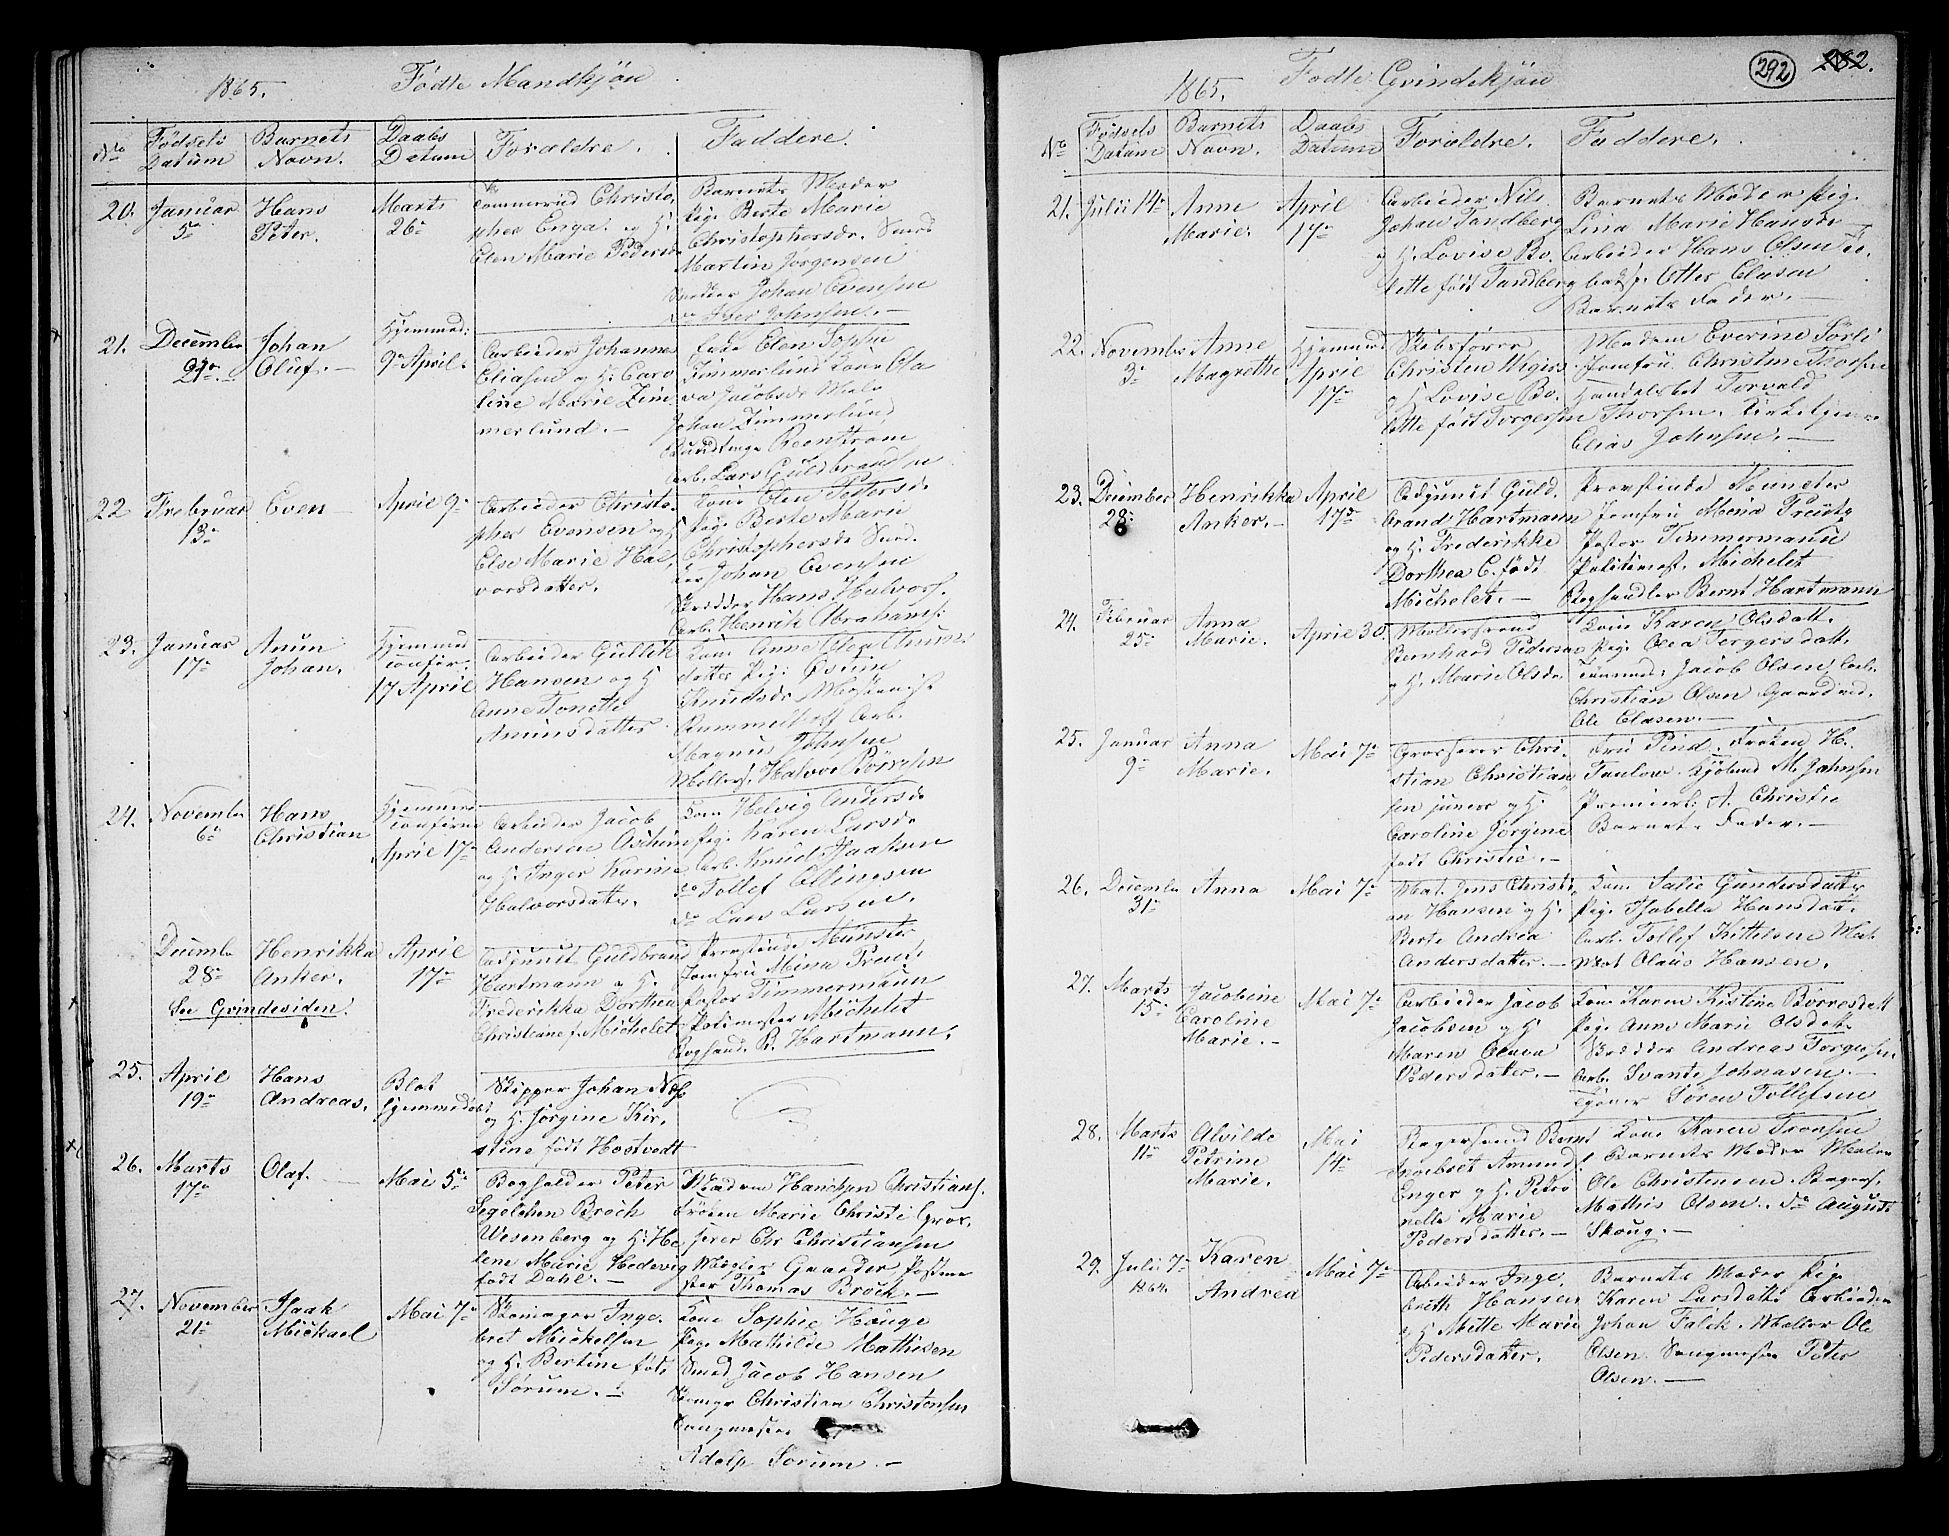 1865. Fødte Mandkjøn
No Fødsels Datum Barnets Navn. Daabs Datum Forældre. Faddere.
20. Januar 5te Hans Peter. Marts 26de
Tømmermd Christo-
pher Enga. og H.
Elen Marie Pedersd.
Barnets Moder
Pig. Berte Marie
Christophersdr. Smed
Martin Jørgensen
Snedker Johan Evensen
21. December 21de Johan Oluf. Hjemmed: 9de April.
Arbeider Johannes
Eliasen og H. Caro
line Marie Zim
merlund.
Elen Sophie
Zimmerlund Kone Ola
va Jacobsdr
Johan Zimmerlund
Arb. Lars Guldbrandsen
22 Februar 13de Even April 9de
Arbeider Christo-
pher Evensen og H
Else Marie Hal-
vorsdatter.
Kone Elen Pettersdr
Pig. Berte Marie
Christophersdr Sned-
ker Johan Evensen
Skrædder Hans Halvors.
Arb. Henrik Abrahams.
23. Januar 17de Anun Johan. Hjemmed Confir. 17 April
Arbeider Gullik
Hansen og H
Anne Tonette
Anunsdatter
Kone Anne Olea Anuns
datter Pig.
Knudsdr
Rummelhoff Arb.
Magnus Johnsen
Møllers. Halvor Børresen
24. November 6te Hans Christian Hjemmed Confirm April 17de
Arbeider Jacob
Andersen Aschim
og H. Inger Karine
Halvorsdatter.
Kone Helvig Andersdr
Pig. Karen Larsdr
Arb. Knud Isaksen
do Tollef Ellingsen
do Lars Larsen.
Decembr 28de Henrikka Anker. April 17de
See Qvindesiden.
Adjunct Guldbrand
Hartmann og H.
Frederikka Dorthea
Christiane f. Michelet
Provstinde Münster
Jomfru Mina Preus
Pastor Timmermann
Politimester Michelet
Boghand. B. Hartmann.
25. April 19de Hans Andreas. Blot Hjemmedøbt
Skipper Johan Næss
og H. Jørgine Kir-
stine født Hostvedt
26. Marts 17de Olaf. Mai 5te
Bogholder Peter
Segelchen Broch
Wesenberg og H. He-
lene Marie Hedevig
født Dahl.
Madam Hanchen Christians.
Frøken Marie Christi Gros-
serer Chr Christiansen
Mægler Gaarder Postme
ster Thomas Broch.
27. November 21de Isaak Mickael Mai 7de
Skomager Inge-
bret Mickelsen
og H. Bertine født
Sørum.
Kone Sophie Houge
Pige Mathilde Mathisen
Smed Jacob Hansen
Skomgr Christian Christensen
Adolp Sørum.
1865. Fødte Qvindekjøn
292 282.
No Fødsels Datum Barnets Navn. Daabs Datum Forældre. Faddere.
21. Julii 14de Anne Marie. April 17de
Arbeider Nils
Johan Tandberg
og H. Lovise Bo-
lette født Tandberg
Barnets Moder Pig.
Lina Marie Hansdr
Arbeider Hans Olsen
Otter Clasen
Barnets Fader.
22. Novembr 3die Anne Magrethe Hjemmed April 17de
Skibsfører
Christen Wiger
og H. Lovise Bo-
lette født Torgersen
Madam Everine Sørli
Jomfru Christine Thorsen
Handelsbet Torvald
Thorsen. Kirketjener
Elias Johnsen.
23. December 28de Henrikka Anker. April 17de
Adjunct Guld-
brand Hartmann
og H. Frederikke
Dorthea C. født
Michelet.
Provstinde Münster
Jomfru Mina Preutz
Pastor Timmermann
Politimest. Michelet
Boghandler Bernt Hartmann
24. Februar 25de Anna Marie. April 30.
Møllersvend
Bernhard Pedersen
og H. Marie Olsdr
Kone Karen Olsdatt.
Pig. Olea Torgersdatt.
Tømmed: Jacob Olsen Arb.
Christian Olsen Gaardmd.
Ole Clasen.
25. Januar 9de Anna Marie. Mai 7de
Grosserer Chri-
stian Christian-
sen junior og H.
Caroline Jørgine
født Christie.
Fru Pind. Frøken H.
Taulow. Kjøbmd M. Johnsen
Premierl: A. Christie
Barnets Fader.
26. Decembr 31de Anna Mai 7de
Mat. Jens Christi-
an Hansen og H.
Berte Andrea
Andersdatter.
Kone Salie Gundersdatter
Pig. Isabella Hansdatt.
Arb. Tollef Kittelsen Mat.
Mat Olaus Hansen.
27. Marts 15de Jacobine Caroline Marie. Mai 7de
Arbeider Jacob
Jacobsen og H.
Maren Olava
Pedersdatter.
Kone Karen Kistine Børresdatt
Pig. Anne Marie Olsdatt.
Skrædder Andreas Torgersen
Arb. Svante Johnasen.
Tjener Søren Tollefsen
28. Marts 11te Alvilde Petrine Marie. Mai 14de
Bagersvend Bernt
Ingebret Amund
Enger og H. Petro
nelle Marie
Pedersdatter.
Kone Karen Tronsen
Barnets Moder Maler
Ole Christensen. Bagers.
Mathis Olsen. do August
Skoug.
29. Julii 7de 1864. Karen Andrea Mai 7de
Arbeider Inge-
breth Hansen
og H. Mette Marie
Pedersdatter.
Barnets Moder Pig.
Karen Larsdatt. Arbeider
Johan Falck. Møller Ole
Olsen. Sangmester Peter
Olsen.